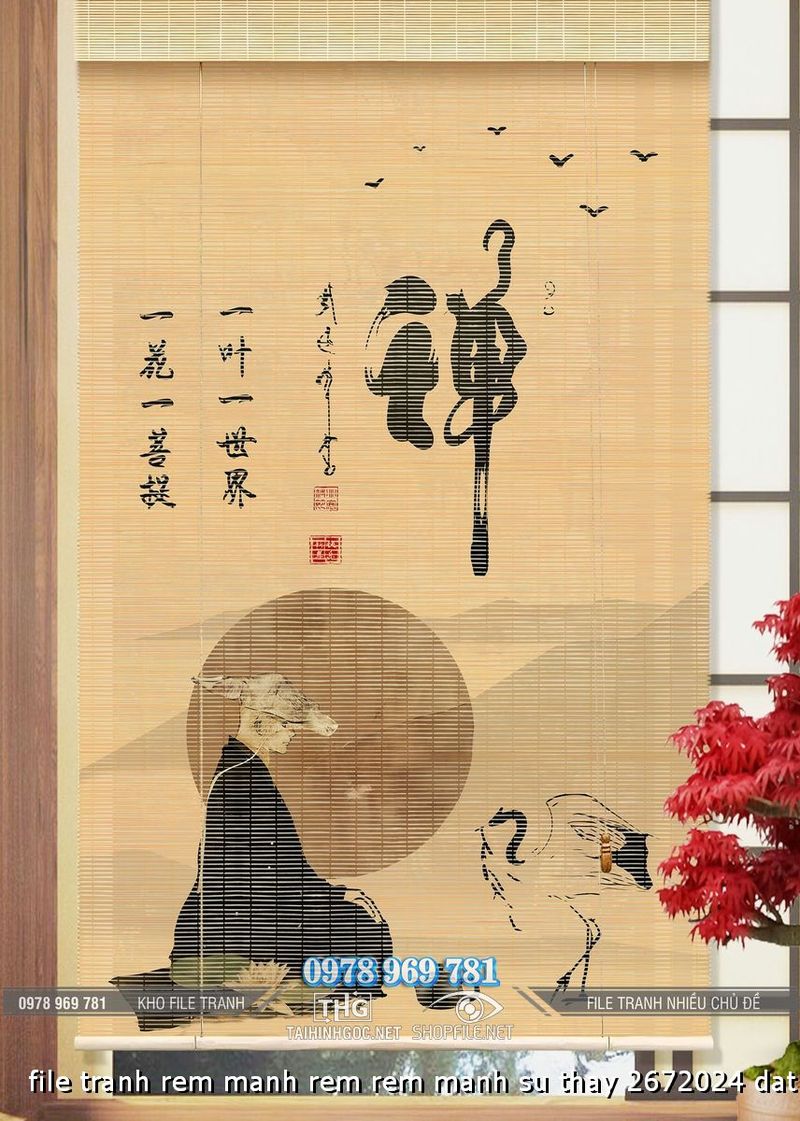 禅
一叶一世界
一花一菩提
0978 969 781
0978 969 781
KHO FILE TRANH
THG
TAIHINHGOC.NET
SHOPFILE.NET
FILE TRANH NHIỀU CHỦ ĐỀ
file tranh rem manh rem rem manh su thay 2672024 dat